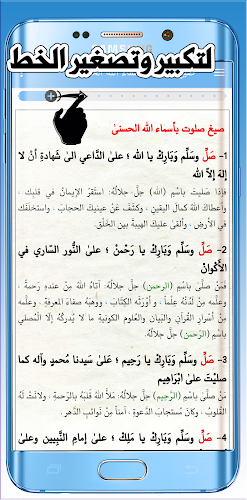 لتكبير وتصغير الخط
صيغ صلوت بأسماء الله الحسنىٰ
1- صَلِّ وسَلِّم وَبَارِكْ يا الله ؛ علىٰ الدَّاعي الىٰ شَهادةِ أنْ لا إلهَ إلاَّ الله
فإذا صَليتَ باسْمِ (الله) جلَّ جلالُهُ: استَقرَّ الإيمانُ في قلبِك ،
وأعطاكَ اللهُ كمال اليقينِ ، وكشَفَ عَنْ عينيكَ الحجابَ ، واستخلَفَك
في الأرضِ ، وألقى عليكَ الهيبةَ بين الخَلْقِ.
2- صَلِّ وسَلِّم وَبَارِكْ يا رَحْمنُ ؛ علىٰ النُّورِ السَّاري في
الأكْوانِ
فمَنْ صلَّىٰ باسْمِ (الرحمنِ) جلَّ جلالُهُ: آتاهُ اللهُ مِنْ عندِهِ رحمةً ،
وعلَّمه مِنْ لَدُنْهُ عِلْماً ، و أوْرَثَه الكِتَابَ ، ووهَبَهُ صفاءَ المعرفةِ ، وعلَّمه
مِنْ أسْرارِ القُرآنِ والبَيَانِ والعُلومِ الكونيةِ ما لا يُدرِكُهُ إلَّا المُصلي
باسْمِ (الرّحمنِ) جلَّ جلالُهُ.
3- صَلِّ وسَلِّم وَبَارِكْ يا رَحيم ؛ علىٰ سَيدنا مُحمدٍ وآله كما
صليْتَ علىٰ ابْراهِيم
فمَنْ صلَّىٰ باسْمِ (الرَّحِيمِ) جلَّ جلالُهُ: مَلأَ اللهُ قلبَهُ بالرَّحمةِ ، ولانَتْ لَهُ
القُلوبُ ، وكانَ مُستجابَ الدَّعوةِ ، آمناً مِنْ نَوائبِ الدَّهرِ.
4- صَلِّ وسَلِّم وَبَارِكْ يا مَلِكُ ؛ علىٰ إمامِ النَّبِيين وعلىٰ